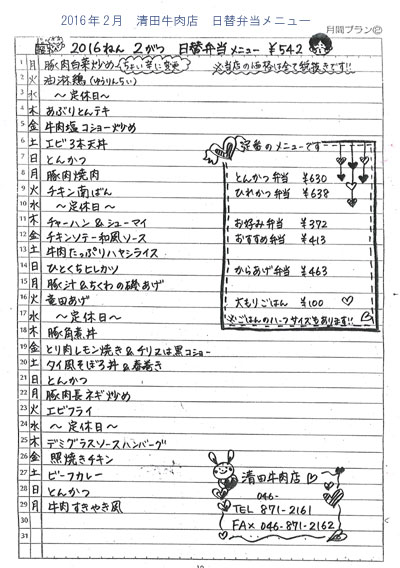 2016年2月 清田牛肉店 日替弁当メニュー
月間プラン
2016ねん 2がつ 日替弁当メニュー ¥542
1 月 豚肉白菜炒め ちょい辛に変更 ※当店の価格は全て税抜きです!!
2 火 油淋鶏(ゆうりんちい)
3 水 〜定休日〜
4 木 あぶりとんテキ
5 金 牛肉塩コショー炒め
6 土 エビ3本天丼
7 日 とんかつ
8 月 豚肉焼肉
9 火 チキン南ばん
10 水 〜定休日〜
11 木 チャーハン&シューマイ
12 金 チキンソテー和風ソース
13 土 牛肉たっぷりハヤシライス
14 日 ひとくちヒレカツ
15 月 豚汁&ちくわの磯あげ
16 火 竜田あげ
17 水 〜定休日〜
18 木 豚角煮丼
19 金 とり肉レモン焼き&チリ又は黒コショー
20 土 タイ風そぼろ丼&春巻き
21 日 とんかつ
22 月 豚肉長ネギ炒め
23 火 エビフライ
24 水 〜定休日〜
25 木 デミグラスソースハンバーグ
26 金 照焼きチキン
27 土 ビーフカレー
28 日 とんかつ
29 月 牛肉すきやき風
30
31
定番のメニューです
とんかつ弁当 ¥630
ひれかつ弁当 ¥638
お好み弁当 ¥372
おすすめ弁当 ¥413
からあげ弁当 ¥463
大もりごはん ¥100
※ごはんのハーフサイズもあります!!
清田牛肉店
046-
TEL 871-2161
FAX 046-871-2162